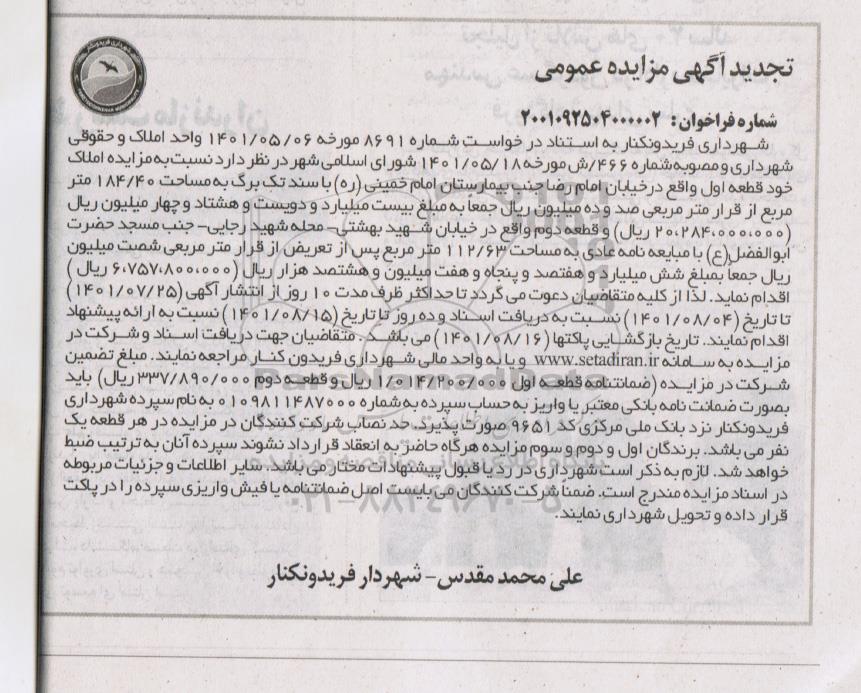 تجدید آگهی مزایده عمومی
شماره فراخوان: ۲۰۰۱۰۹۲۵۰۴۰۰۰۰۰۲
شهرداری فریدونکنار به استناد در خواست شماره ۸۶۹۱ مورخه ۱۴۰۱/۰۵/۰۶ واحد املاک و حقوقی
شهرداری و مصوبه شماره ۴۶۶/ش مورخه ۱۴۰۱/۰۵/۱۸ شورای اسلامی شهر در نظر دارد نسبت به مزایده املاک
خود قطعه اول واقع در خیابان امام رضا جنب بیمارستان امام خمینی (ره) با سند تک برگ به مساحت ۱۸۴/۴۰ متر
مربع از قرار متر مربعی صد و ده میلیون ریال جمعاً به مبلغ بیست میلیارد و دویست و هشتاد و چهار میلیون ریال
(۲۰،۲۸۴،۰۰۰،۰۰۰ ریال) و قطعه دوم واقع در خیابان شهید بهشتی- محله شهید رجایی- جنب مسجد حضرت
ابوالفضل(ع) با مبایعه نامه عادی به مساحت ۱۱۲/۶۳ متر مربع پس از تعریض از قرار متر مربعی شصت میلیون
ریال جمعاً بمبلغ شش میلیارد و هفتصد و پنجاه و هفت میلیون و هشتصد هزار ریال (۶،۷۵۷،۸۰۰،۰۰۰ ریال )
اقدام نماید. لذا از کلیه متقاضیان دعوت می گردد تا حداکثر ظرف مدت ۱۰ روز از انتشار آگهی (۱۴۰۱/۰۷/۲۵)
تا تاریخ (۱۴۰۱/۰۸/۰۴) نسبت به دریافت اسناد و ده روز تا تاریخ (۱۴۰۱/۰۸/۱۵) نسبت به ارائه پیشنهاد
اقدام نمایند. تاریخ بازگشایی پاکتها (۱۴۰۱/۰۸/۱۶) می باشد. متقاضیان جهت دریافت اسناد و شرکت در
مزایده به سامانه www.setadiran.ir و یا به واحد مالی شهرداری فریدون کنار مراجعه نمایند. مبلغ تضمین
شرکت در مزایده (ضمانتنامه قطعه اول ۱/۰۱۴/۲۰۰/۰۰۰ ریال و قطعه دوم ۳۳۷/۸۹۰/۰۰۰ ریال) باید
بصورت ضمانت نامه بانکی معتبر یا واریز به حساب سپرده به شماره ۰۱۰۹۸۱۱۴۸۷۰۰۰ به نام سپرده شهرداری
فریدونکنار نزد بانک ملی مرکزی کد ۹۶۵۱ صورت پذیرد. حد نصاب شرکت کنندگان در مزایده در هر قطعه یک
نفر می باشد. برندگان اول و دوم و سوم مزایده هرگاه حاضر به انعقاد قرارداد نشوند سپرده آنان به ترتیب ضبط
خواهد شد. لازم به ذکر است شهرداری در رد یا قبول پیشنهادات مختار می باشد. سایر اطلاعات و جزئیات مربوطه
در اسناد مزایده مندرج است. ضمناً شرکت کنندگان می بایست اصل ضمانتنامه یا فیش واریزی سپرده را در پاکت
قرار داده و تحویل شهرداری نمایند.
علی محمد مقدس- شهردار فریدونکنار